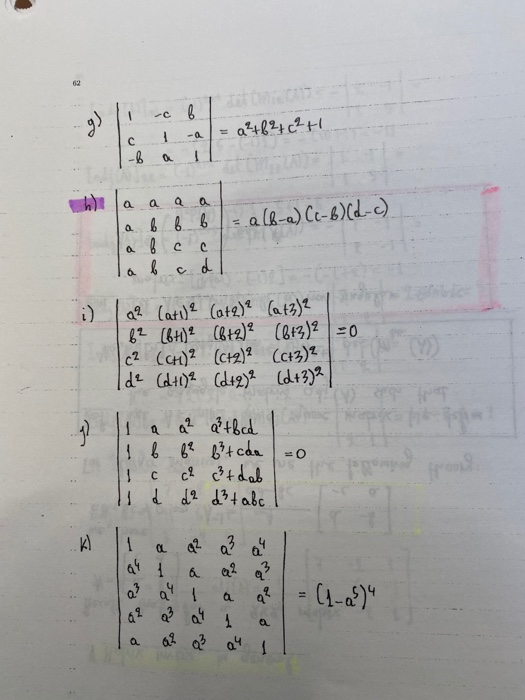 62
g) | 1 -c b |
| c 1 -a | = a²+b²+c²+1
| -b a 1 |
h) | a a a a |
| a b b b | = a(b-a)(c-b)(d-c)
| a b c c |
| a b c d |
i) | a² (a+1)² (a+2)² (a+3)² |
| b² (b+1)² (b+2)² (b+3)² | =0
| c² (c+1)² (c+2)² (c+3)² |
| d² (d+1)² (d+2)² (d+3)² |
j) | 1 a a² a³+bcd |
| 1 b b² b³+cda | =0
| 1 c c² c³+dab |
| 1 d d² d³+abc |
k) | 1 a a² a³ a⁴ |
| a⁴ 1 a a² a³ |
| a³ a⁴ 1 a a² | = (1-a⁵)⁴
| a² a³ a⁴ 1 a |
| a a² a³ a⁴ 1 |